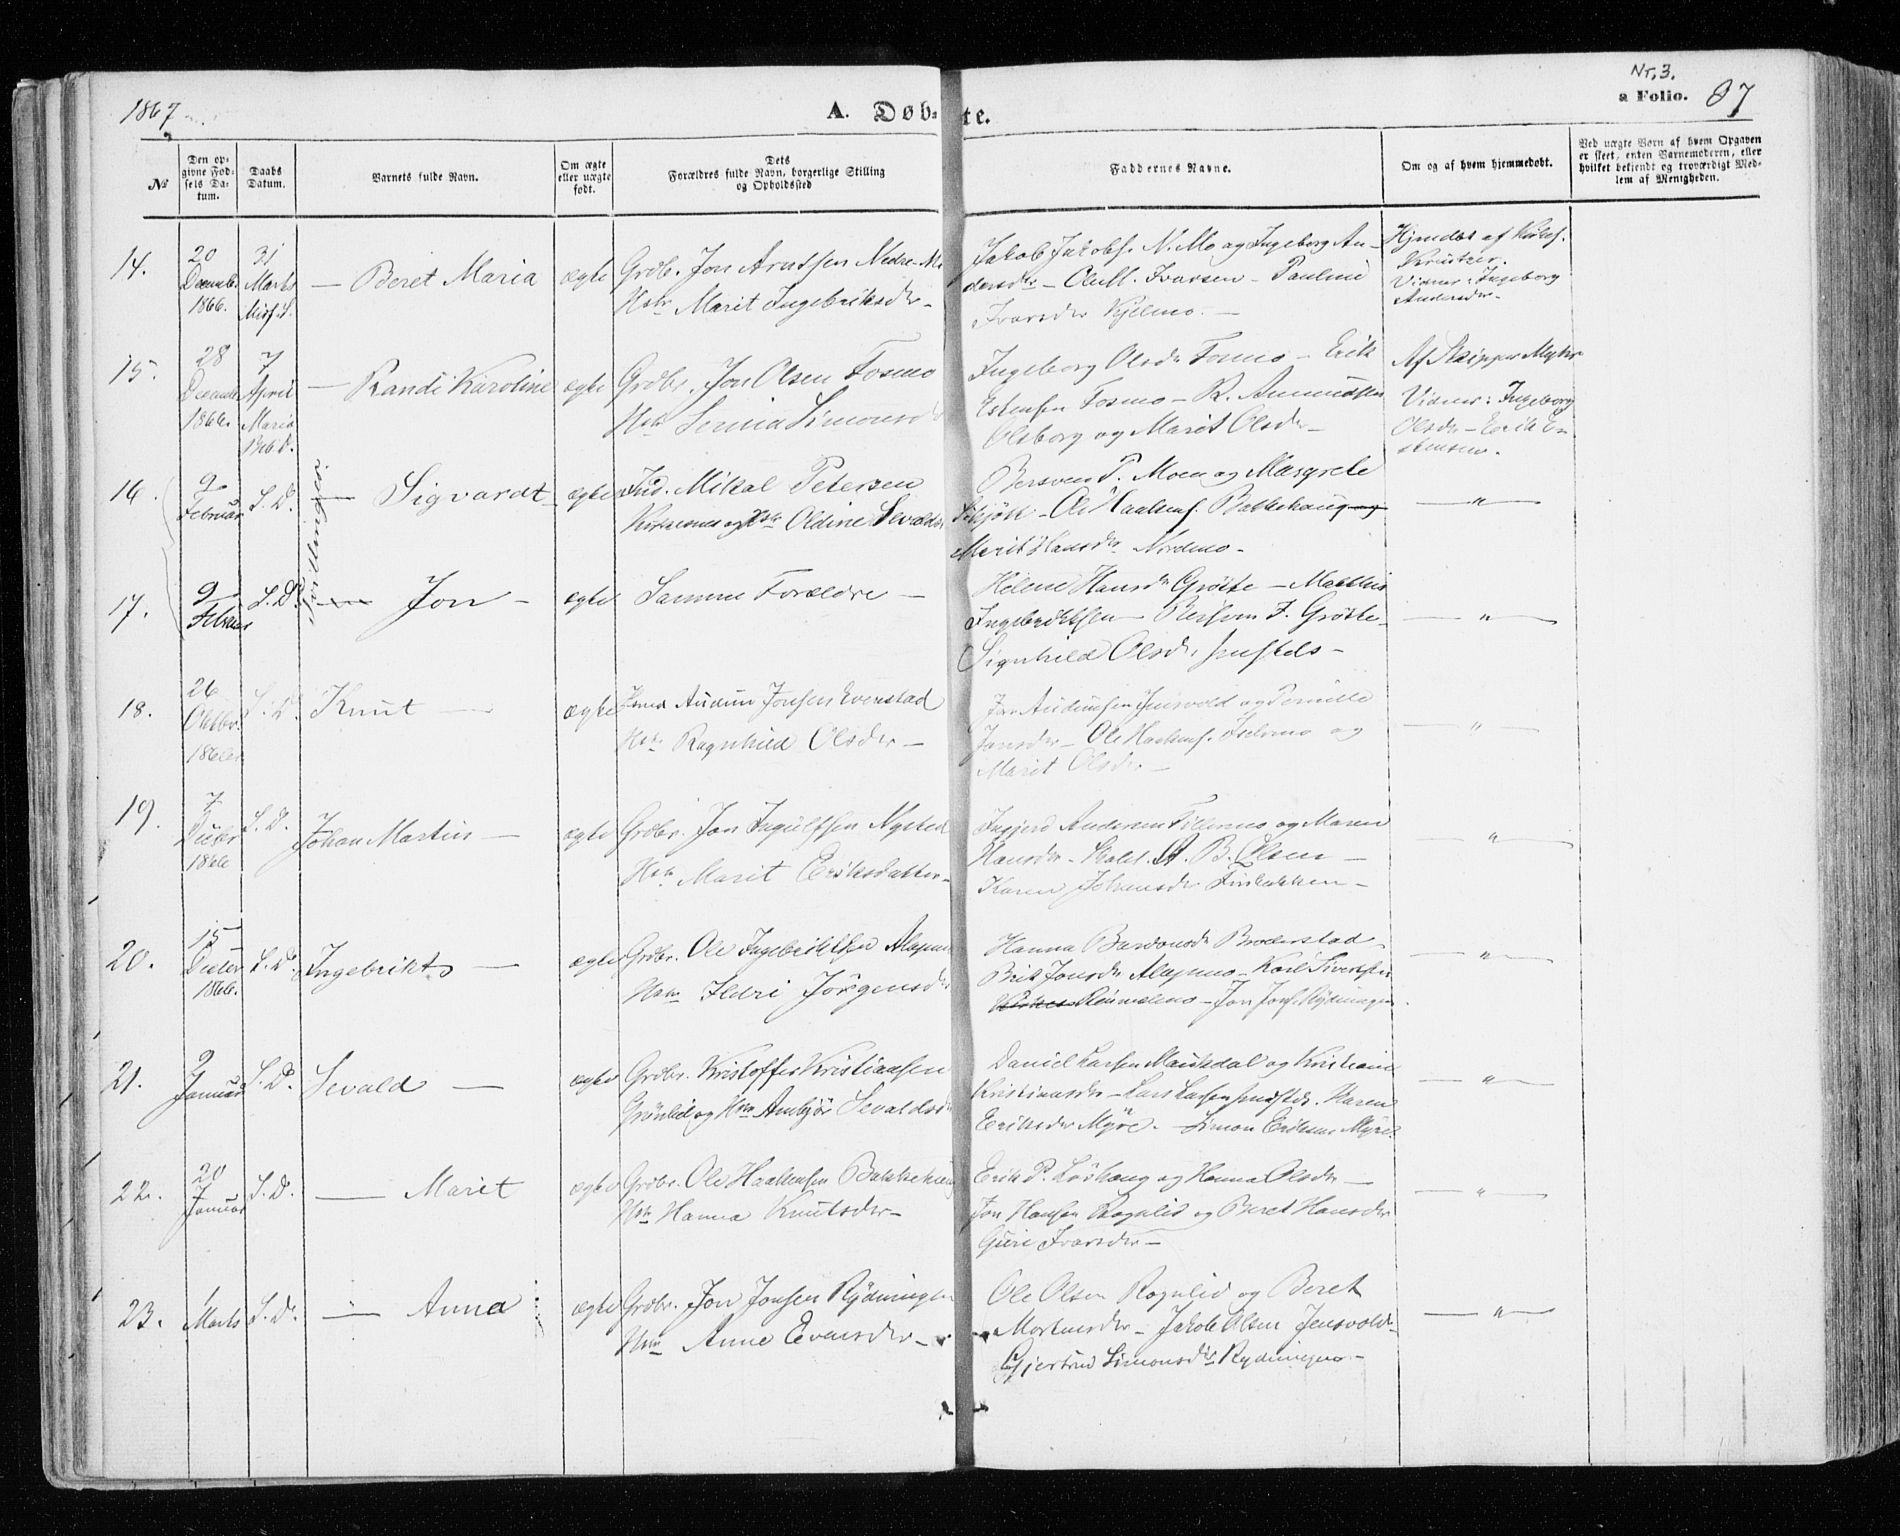 1867
A. Døb-te.
Nr. 3.
a Folio. 87
№
Den opgivne Fødsels Datum.
Daabs Datum.
Barnets fulde Navn.
Om ægte eller uægte født.
Dets Forældres fulde Navn, borgerlige Stilling og Opholdssted
Faddernes Navne.
Om og af hvem hjemmedøbt.
Ved uægte Børn af hvem Opgaven er skeet, enten Barnemoderen, eller hvilket bekjendt og troværdigt Medlem af Menigheden.
14.
20 Decemb. 1866.
31 Marts
Beret Maria
ægte
Grdbr. Jon Arntsen Nedre-Mo
Hstr Marit Ingebriktsdr
Jakob Jakobs. N. Mo og Ingeborg An-
dersdr - Ole M. Ivarsen - Pauline
Ivarsdr Kjelmo.
Hjmdbt af Kirkes.
Vidner: Ingeborg
Andersdr
15.
28 Decemb 1866.
7 April Maria Beb. D.
Randi Karoline
ægte
Grdbr. Jon Olsen Fosmo
Hstr Simonsdr
Ingeborg Olsdr Fosmo - Erik
Estensen Fosmo - R. Amundsen
Olsborg og Marit Olsdr
Af Skipper
Vidner: Ingeborg
Olsdr - Erik E-
stensen.
16.
9 Februar
S. D.
Tvillinger
Sigvardt
ægte
Ind. Mikal Petersen
og Hstr Oldine Sevaldsdr
Bersven P. Moen og Masgrete
Ole Haakens. Bakkehaug og
Marit Hansdr Nordmo
"
17.
9 Februar
S. D.
Jon
ægte
Samme Forældre
Helene Hansdr Grøtte - Matthis
Ingebrigtsen - F. Grøtte
Signhild Olsdr
"
18.
26 Oktbr. 1866
S. D.
Knut
ægte
Audun Jonsen Evenstad
Hstr Ragnhild Olsdr
Jon Audunsen Jensvold og Pernille
Jonsdr - Ole Haakens. Fosmo og
Marit Olsdr
"
19.
7 Decbr 1866
S. D.
Johan Martin
ægte
Grdbr. Jon Ingulfsen Nysted
Hstr Marit Eriksdatter
Andersen og Maren
Hansdr - B. Olsen
Karen Johansdr
"
20.
15 Decbr 1866.
S. D.
Ingebrikt
ægte
Grdbr. Ole Ingebriktsen Alapmo
Hstr Ildri Jørgensdr
Hanna Bardonsdr Broderstad
Brit Jonsdr Alapmo - Karl Sivertsen
Jon Jons. Rydningen
"
21.
9 Januar
S. D.
Sevald
ægte
Grdbr. Kristoffer Kristiansen
Grønlid og Hstr Anbjør Sevaldsdr
Daniel Larsen Maukdal og Kristiane
Kristiansdr - Lars Larsen . Karen
Eriksdr Myre. - Simon Eriksen Myre
"
22.
20 Januar
S. D.
Marit
ægte
Grdbr. Ole Haakensen Bakkehaug
Hstr Hanna Knutsdr
Erik P. Løvhaug og Hanna Olsdr
Jon Hansen Rognlid og Beret Hansdr
Guri Ivarsdr
"
23.
1 Marts
S. D.
Anna
ægte
Grdbr. Jon Jonsen Rydningen
Hstr Anne Evensdr
Ole Olsen Rognlid og Beret
Mortensdr - Jakob Olsen Jensvold
Gjertrud Simonsdr Rydningen
"